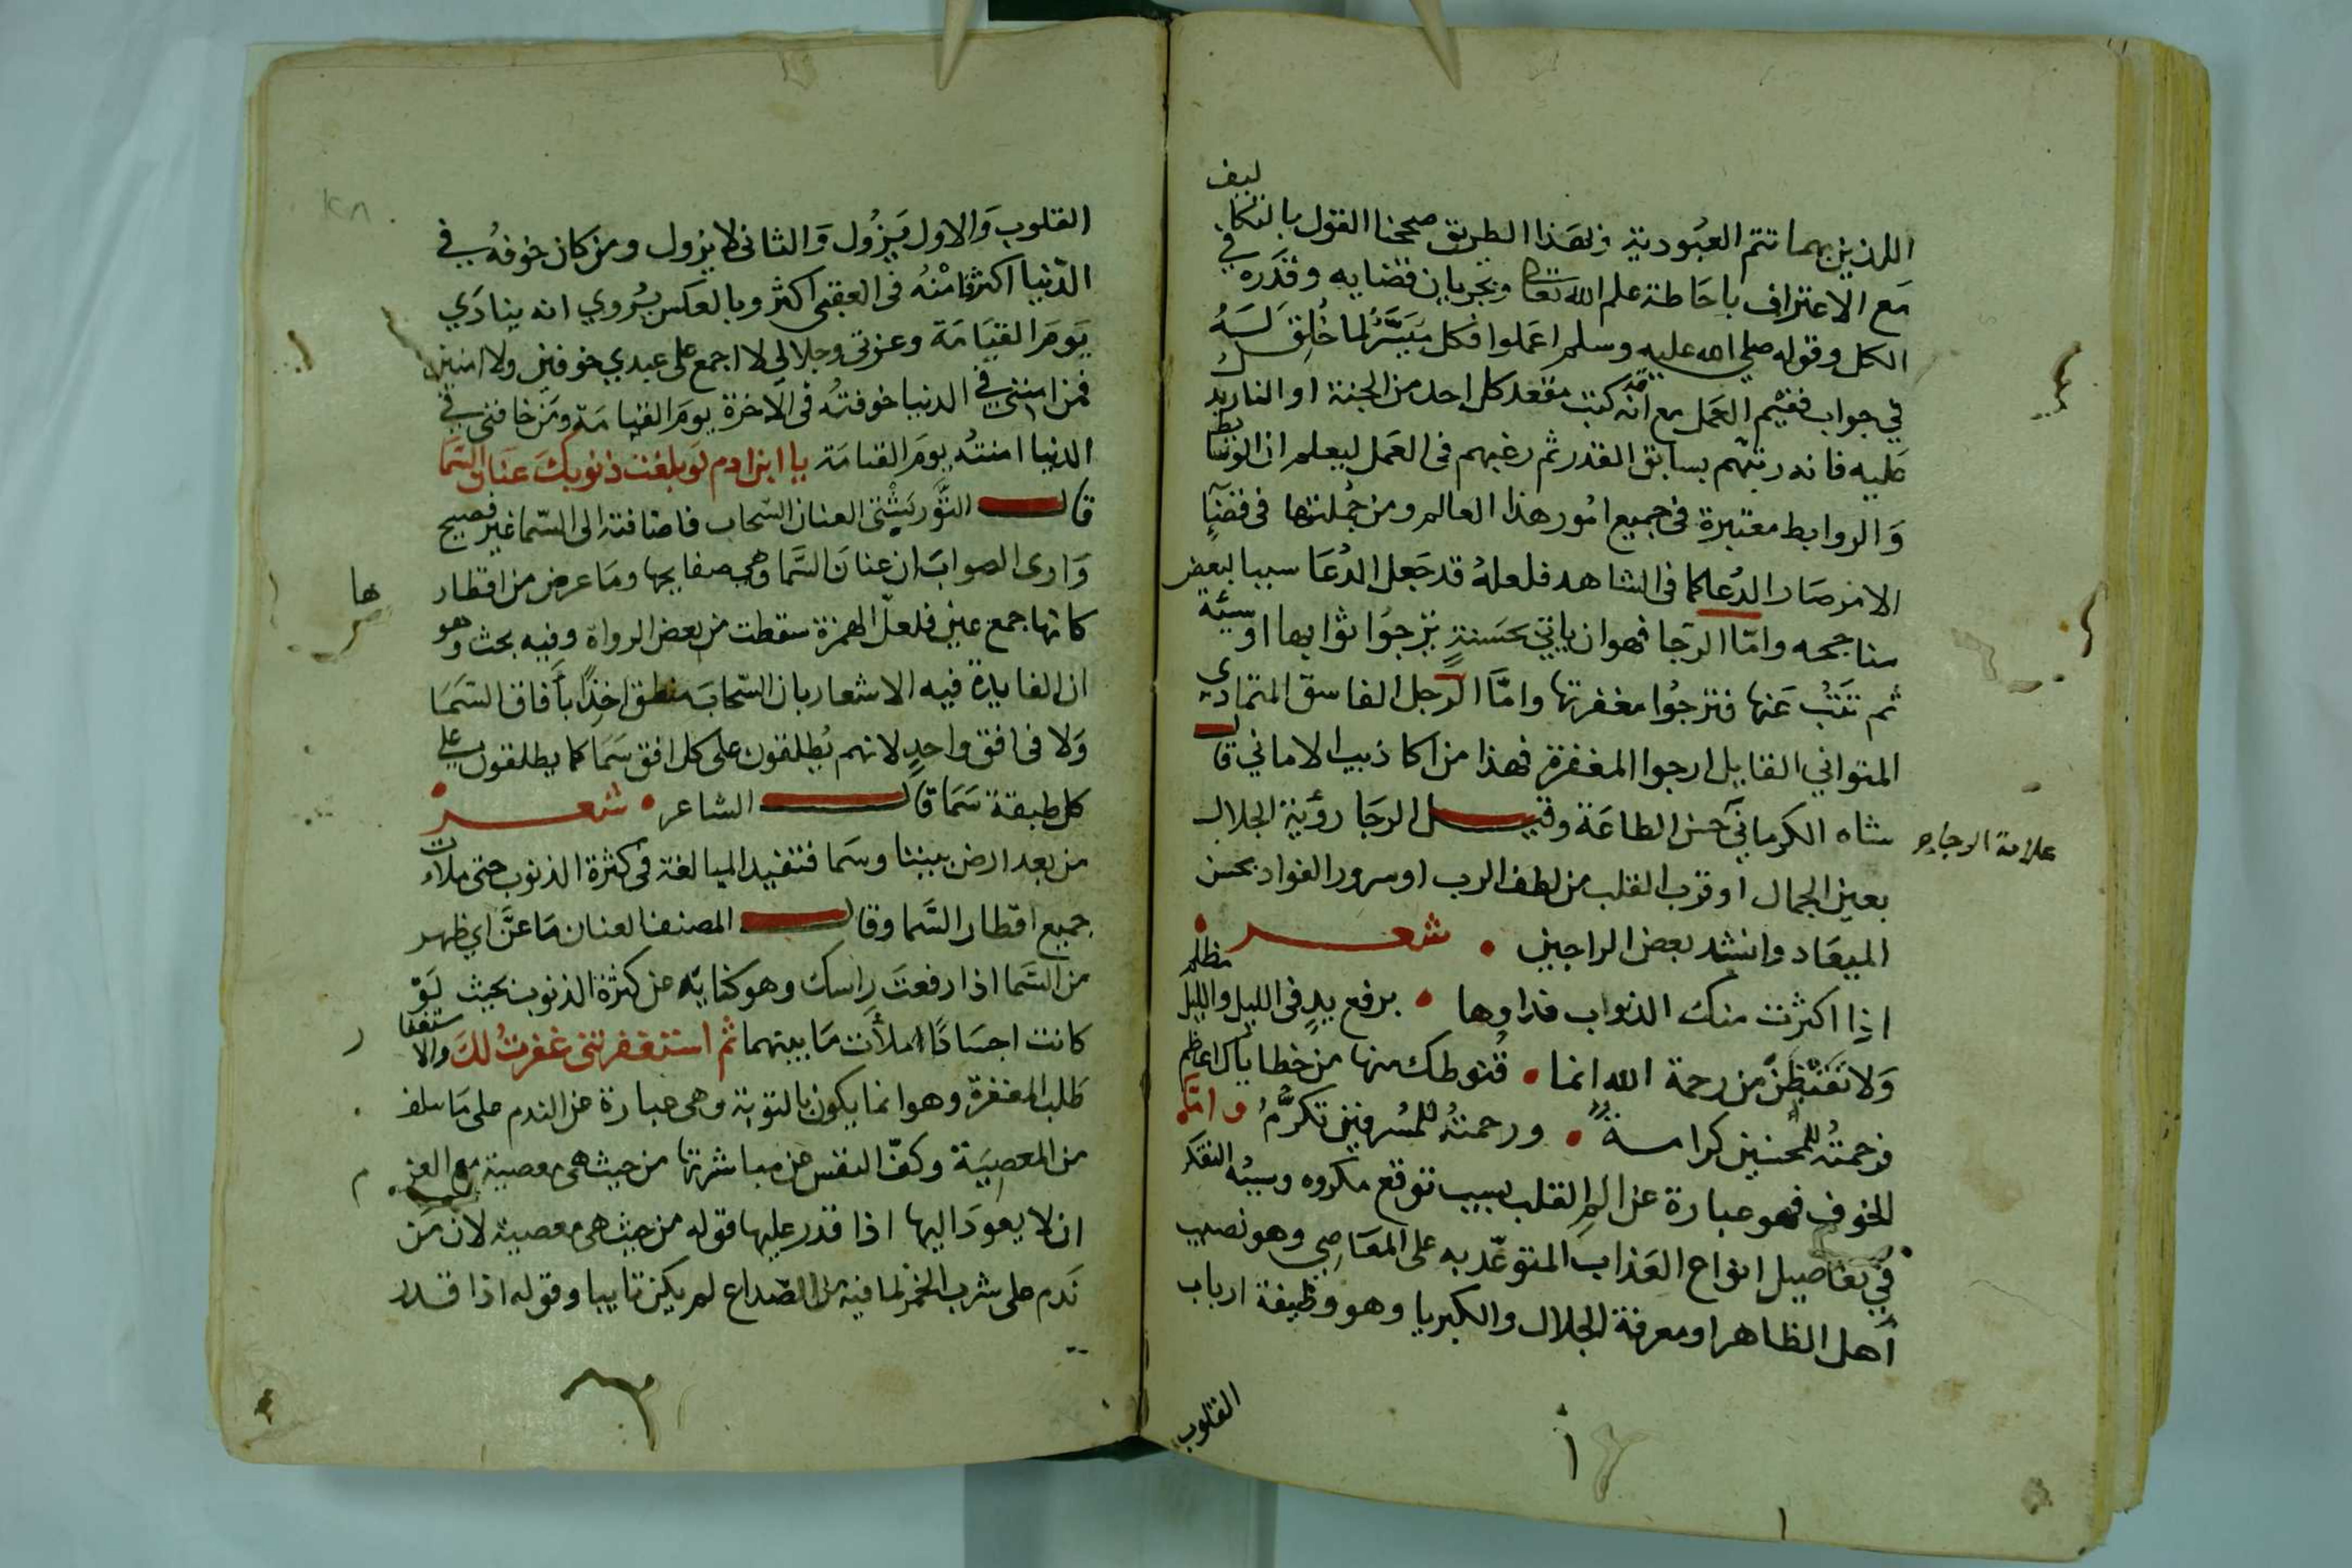 اللذين بهما تتم العبودية وبهذا الطريق صححنا القول بالتكاليف
مع الاعتراف باحاطة علم الله تعالى وبجريان قضايه وقدره في
الكل وقوله صلي الله عليه وسلم اعملوا فكل ميسّر لما خلق له
في جواب ففيم العمل مع انه كتبت مقعد كل احد من الجنة او النار يدل
عليه فانه رتبهم بسابق القدر ثم رغبهم فى العمل ليعلم ان الوسايط
والروابط معتبرة فى جميع امور هذا العالم ومن جملتها فى قضآ
الامر صار الدعا كما فى الشاهد فلعله قد جعل الدعا سببا لبعض
مناجحه وامّا الرجا فهوان ياتي بحسنة يرجوا ثوابها او سيئة
ثم تبت عنها فترجوا مغفرتها وامّا الرجل الفاسق المتمادي
المتواني القايل ارجوا المغفرة فهذا من اكاذيب الاماني قال
علامة الرجا
شاه الكرماني حسن الطاعة وقيل الرجا رؤية الجلال
بعين الجمال او قرب القلب من لطف الرب او سرور الفواد بحسن
الميعاد وانشد بعض الراجين • شعر •
اذا اكثرت منك الذنوب فداوها • برفع يد فى الليل والليل مظلم
ولا تقنطن من رحمة الله انما • قنوطك منها من خطاياك اعظم
فرحمته للمحسنين كرامة • ورحمته للمسرفين تكرّم وامّا
الخوف فهو عبارة عن الم القلب بسبب توقع مكروه وسببه التفكر
في تفاصيل انواع العذاب المتوعّد به على المعاصي وهو نصيب
اهل الظاهر او معرفة الجلال والكبريا وهو وظيفة ارباب
القلوب
القلوب والاول يزول والثانى لا يزول ومن كان خوفه في
الدنيا اكثر فامنه فى العقبى اكثر وبالعكس يروي انه ينادي
يوم القيامة وعزتى وجلالي لا اجمع على عبدي خوفين ولا امنين
فمن امننى في الدنيا خوفته فى الاخرة يوم القيامة ومن خافنى في
الدنيا امنته يوم القيامة يا ابن ادم لو بلغت ذنوبك عنان السما
قال التوربشتى العنان السحاب فاضافته الى السما غير فصيح
وارى الصواب ان عنان السما وهي صفايحها وما عرض من اقطار
ها
كانها جمع عنن فلعل الهمزة سقطت من بعض الرواة وفيه بحث وهو
ان الفايدة فيه الاشعار بان السحاب منطق اخذا بآفاق السما
ولا فى افق واحد لانهم يطلقون على كل افق سما كما يطلقون على
كل طبقة سما قال الشاعر • شعر •
من بعد ارض بيننا وسما فتفيد المبالغة فى كثرة الذنوب حتى ملات
جميع اقطار السما وقال المصنف العنان ما عنّ اي ظهر
من السما اذا رفعت راسك وهو كناية عن كثرة الذنوب بحيث لو
كانت اجسادا املأت ما بينهما ثم استغفرتنى غفرت لك والاستغفا
ر
طلب المغفرة وهو انما يكون بالتوبة وهى عبارة عن الندم على ما سلف
من المعصية وكفّ النفس عن مباشرتها من حيث هى معصية مع العز
م
ان لا يعود اليها اذا قدر عليها قوله من حيث هى معصية لان من
ندم على شرب الخمر لما فيه من الصداع لم يكن تايبا وقوله اذا قدر